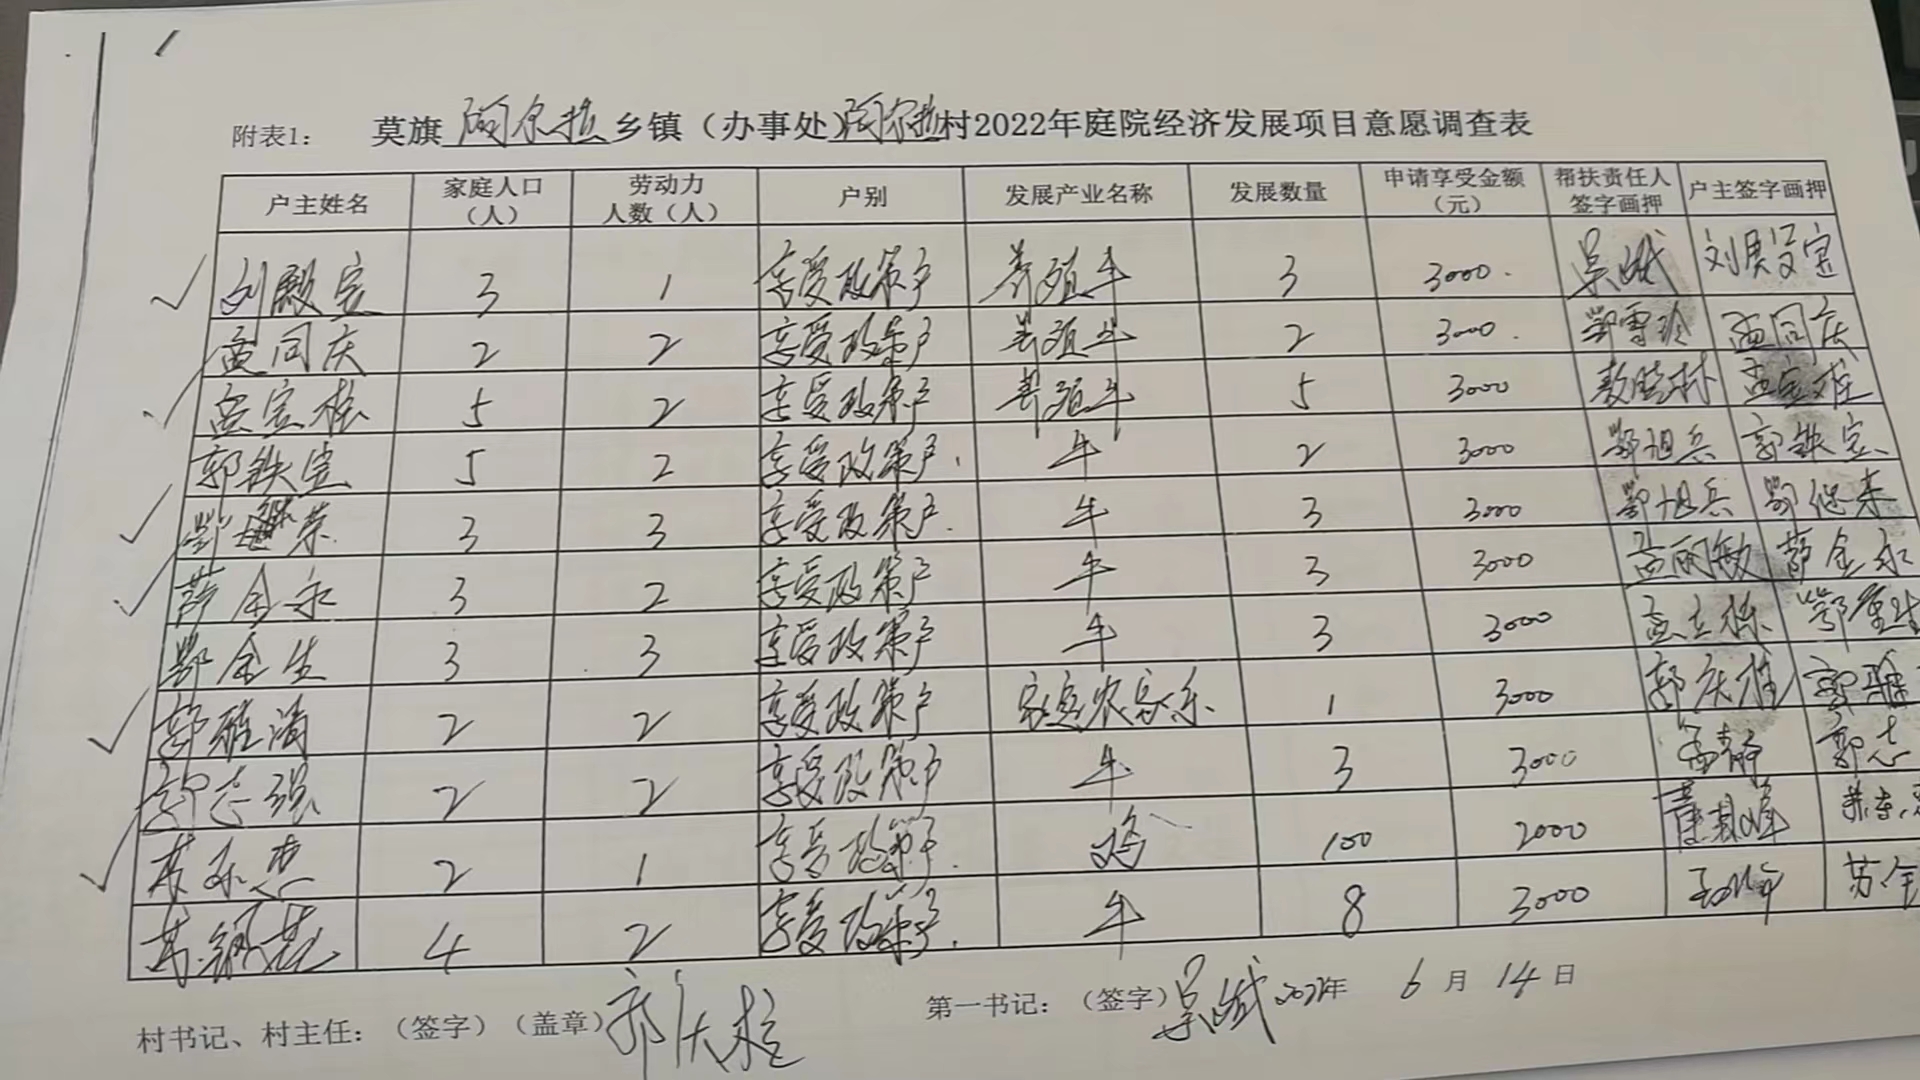 附表1： 莫旗 阿尔拉 乡镇（办事处）阿尔拉村2022年庭院经济发展项目意愿调查表
户主姓名 家庭人口（人） 劳动力人数（人） 户别 发展产业名称 发展数量 申请享受金额（元） 帮扶责任人签字画押 户主签字画押
刘殿宝 3 1 享受政策户 养殖牛 3 3000 吴斌 刘殿宝
孟同庆 2 2 享受政策户 养殖牛 2 3000 鄂雪玲 孟同庆
孟宝柱 5 2 享受政策户 养殖牛 5 3000 敖晓林 孟宝柱
郭铁宝 5 2 享受政策户 牛 2 3000 鄂旭兵 郭铁宝
鄂继荣 3 3 享受政策户 牛 3 3000 鄂旭兵 鄂继来
萨金永 3 2 享受政策户 牛 3 3000 孟丽敏 萨金永
鄂金生 3 3 享受政策户 牛 3 3000 孟立栋 鄂金生
郭雅清 2 2 享受政策户 家庭农家乐 1 3000 郭庆柱 郭雅
郭志强 2 2 享受政策户 牛 3 3000 孟静 郭志
2 1 享受政策户 鸡 100 2000
苏 4 2 享受政策户 牛 8 3000 苏金
村书记、村主任：（签字）（盖章）郭庆柱 第一书记：（签字）吴斌 2022年 6月 14日